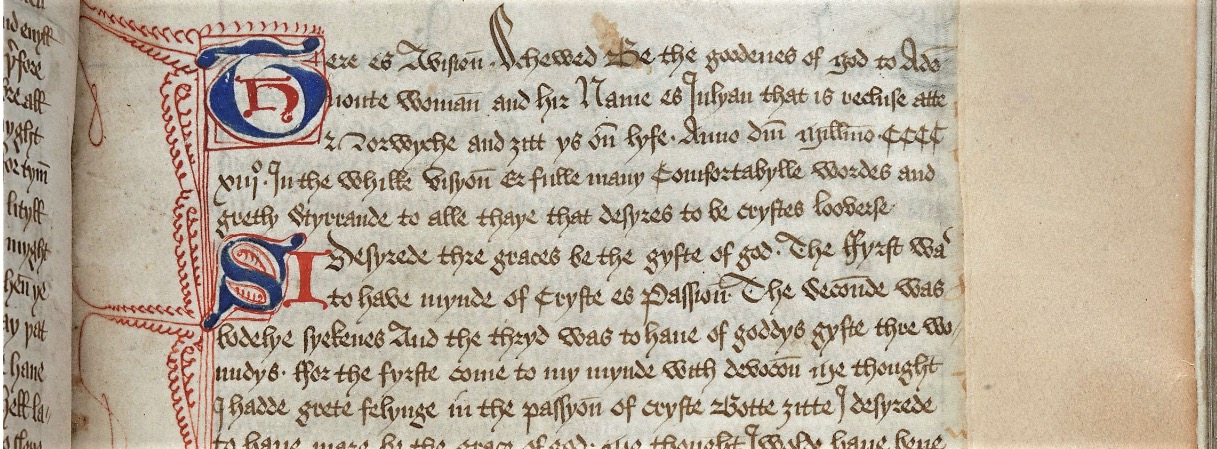 Here es Avisioun Schewed Be the goodenes of god to Ade
uoute Woman and hir Name es Julyan that is recluse atte
Norwyche and zitt ys on lyfe. Anno dm̄ millīmo CCCC
xiijº. In the whilke visyon Er fulle many Comfortabylle wordes and
gretly Styrrande to alle thaye that desyres to be crystes looverse
I Desyrede thre graces be the gyfte of god. The ffyrst was
to have mynde of Cryste es Passioun. The Seconde was
bodelye syekenes And the thryd was to haue of goddys gyfte thre wo
undys. ffor the fyrste come to my mynde with devocon me thought
I hadde grete felynge in the passyon of cryste Botte zitte I desyrede
to haue mare be the grace of god. me thought I wolde haue bene